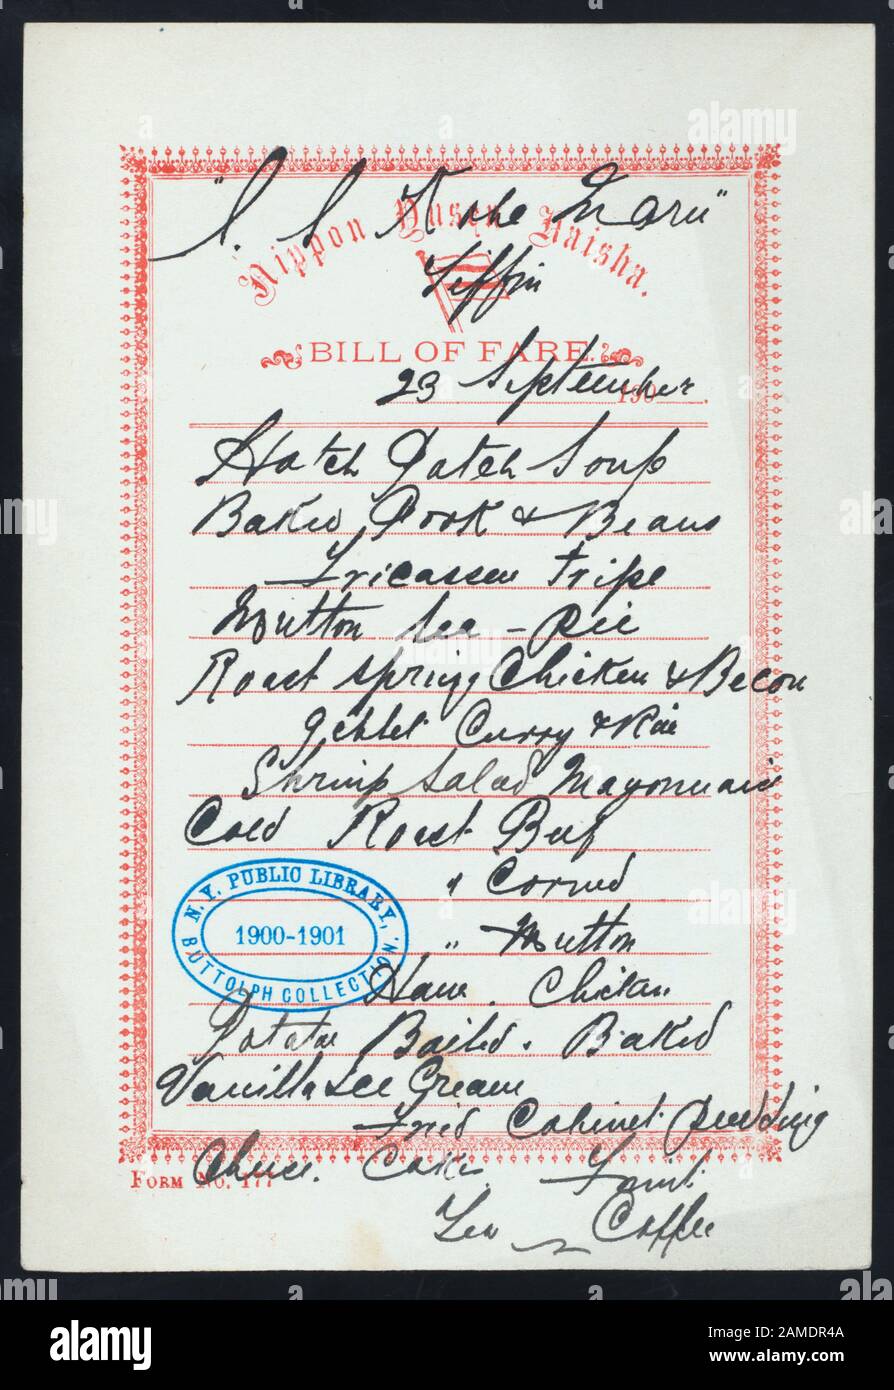 "S. S Kobe Maru"
Nippon Yusen Kaisha.
Tiffin
BILL OF FARE.
23 September 190
Hotch Potch Soup
Baked Pork & Beans
Fricassee Tripe
Mutton Sea-Pie
Roast Spring Chicken & Bacon
Giblet Curry & Rice
Shrimp Salad Mayonnaise
Cold Roast Beef
" Corned
" Mutton
Ham. Chicken
Potatoe Boiled. Baked
Vanilla Ice Cream
Fried Cabinet Pudding
Cheese. Cake Fruit
Tea Coffee
FORM NO. 177
N. Y. PUBLIC LIBRARY,
1900-1901
BUTTOLPH COLLECTION.
alamy
Image ID: 2AMDR4A
www.alamy.com